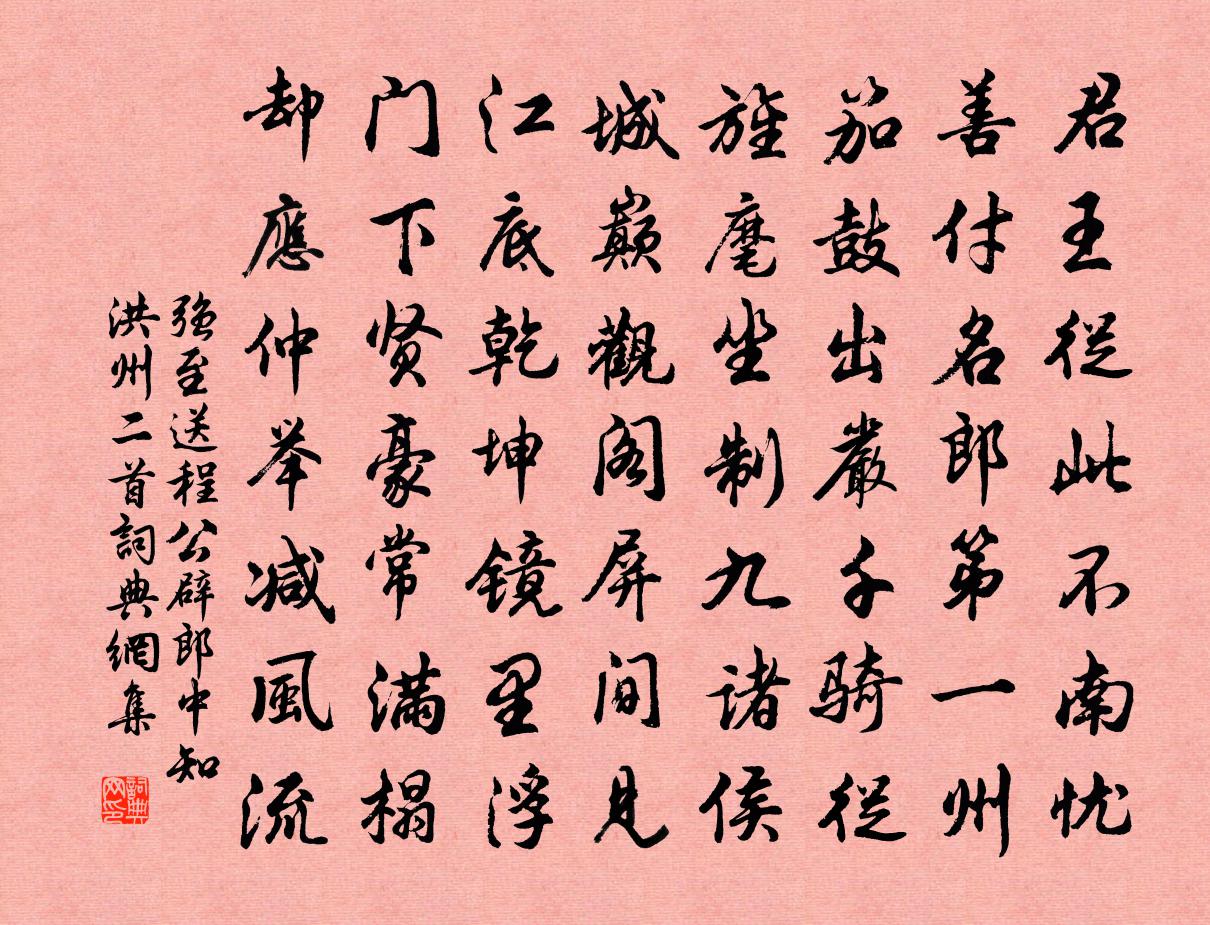 君王从此不南忧
善付名郎第一州
笳鼓出严千骑从
旌麾坐制九诸侯
城巅觀阁屏间见
江底乾坤镜里浮
门下贤豪常满榻
却應仲举减風流
强至送程公辟郎中知
洪州二首詞典網集
詞典网印